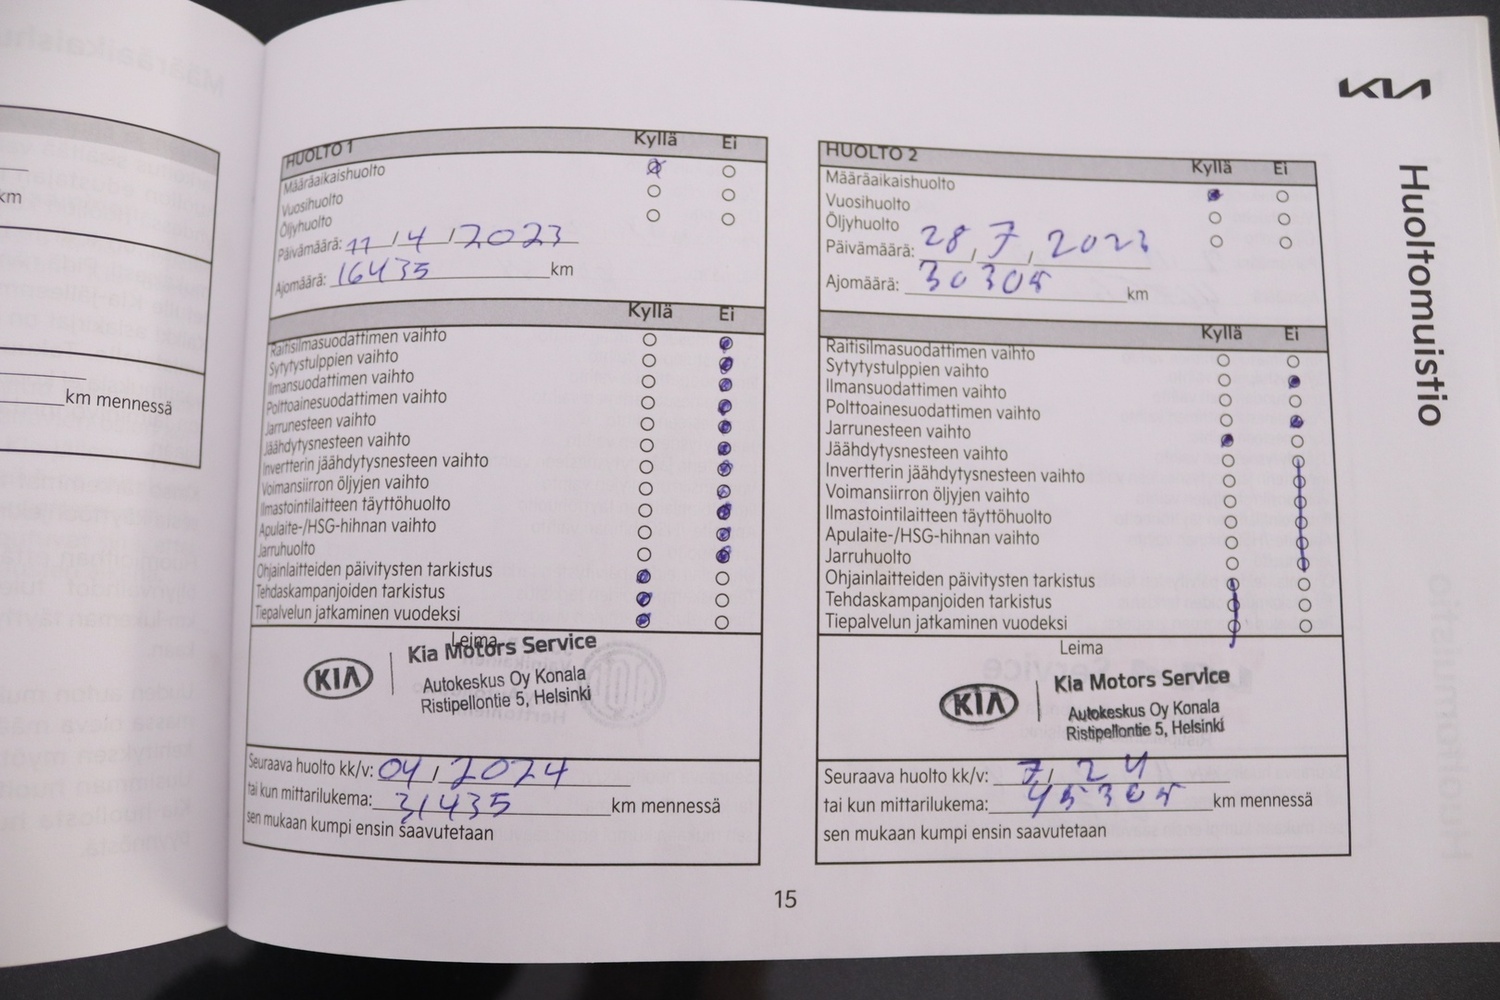 km
km mennessä
KIA
Huoltomuistio
HUOLTO 1 Kyllä Ei
Määräaikaishuolto
Vuosihuolto
Öljyhuolto
Päivämäärä: 11 / 4 / 2023
Ajomäärä: 16435 km
Kyllä Ei
Raitisilmasuodattimen vaihto
Sytytystulppien vaihto
Ilmansuodattimen vaihto
Polttoainesuodattimen vaihto
Jarrunesteen vaihto
Jäähdytysnesteen vaihto
Invertterin jäähdytysnesteen vaihto
Voimansiirron öljyjen vaihto
Ilmastointilaitteen täyttöhuolto
Apulaite-/HSG-hihnan vaihto
Jarruhuolto
Ohjainlaitteiden päivitysten tarkistus
Tehdaskampanjoiden tarkistus
Tiepalvelun jatkaminen vuodeksi
Leima
KIA
Kia Motors Service
Autokeskus Oy Konala
Ristipellontie 5, Helsinki
Seuraava huolto kk/v: 04 / 2024
tai kun mittarilukema: 31435 km mennessä
sen mukaan kumpi ensin saavutetaan
HUOLTO 2 Kyllä Ei
Määräaikaishuolto
Vuosihuolto
Öljyhuolto
Päivämäärä: 28 / 7 / 2023
Ajomäärä: 30305 km
Kyllä Ei
Raitisilmasuodattimen vaihto
Sytytystulppien vaihto
Ilmansuodattimen vaihto
Polttoainesuodattimen vaihto
Jarrunesteen vaihto
Jäähdytysnesteen vaihto
Invertterin jäähdytysnesteen vaihto
Voimansiirron öljyjen vaihto
Ilmastointilaitteen täyttöhuolto
Apulaite-/HSG-hihnan vaihto
Jarruhuolto
Ohjainlaitteiden päivitysten tarkistus
Tehdaskampanjoiden tarkistus
Tiepalvelun jatkaminen vuodeksi
Leima
KIA
Kia Motors Service
Autokeskus Oy Konala
Ristipellontie 5, Helsinki
Seuraava huolto kk/v: 7 / 24
tai kun mittarilukema: 45305 km mennessä
sen mukaan kumpi ensin saavutetaan
15